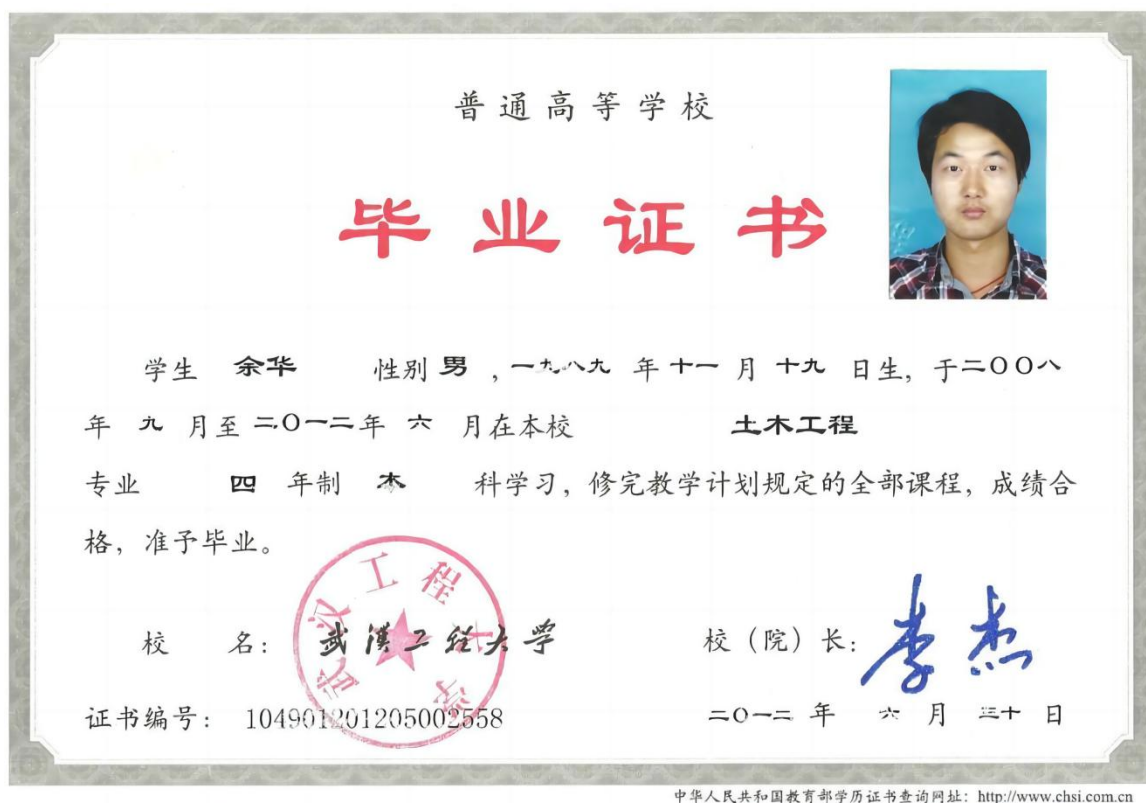 普通高等学校
毕业证书
学生 余华 性别 男 ,一九八九 年 十一 月 十九 日生, 于二〇〇八
年 九 月至 二〇一二年 六 月在本校 土木工程
专业 四 年制 本 科学习, 修完教学计划规定的全部课程, 成绩合
格, 准予毕业。
武汉工程大学
校 名: 武漢工程大学 校(院)长: 李杰
证书编号: 104901201205002558 二〇一二 年 六 月 三十 日
中华人民共和国教育部学历证书查询网址: http://www.chsi.com.cn